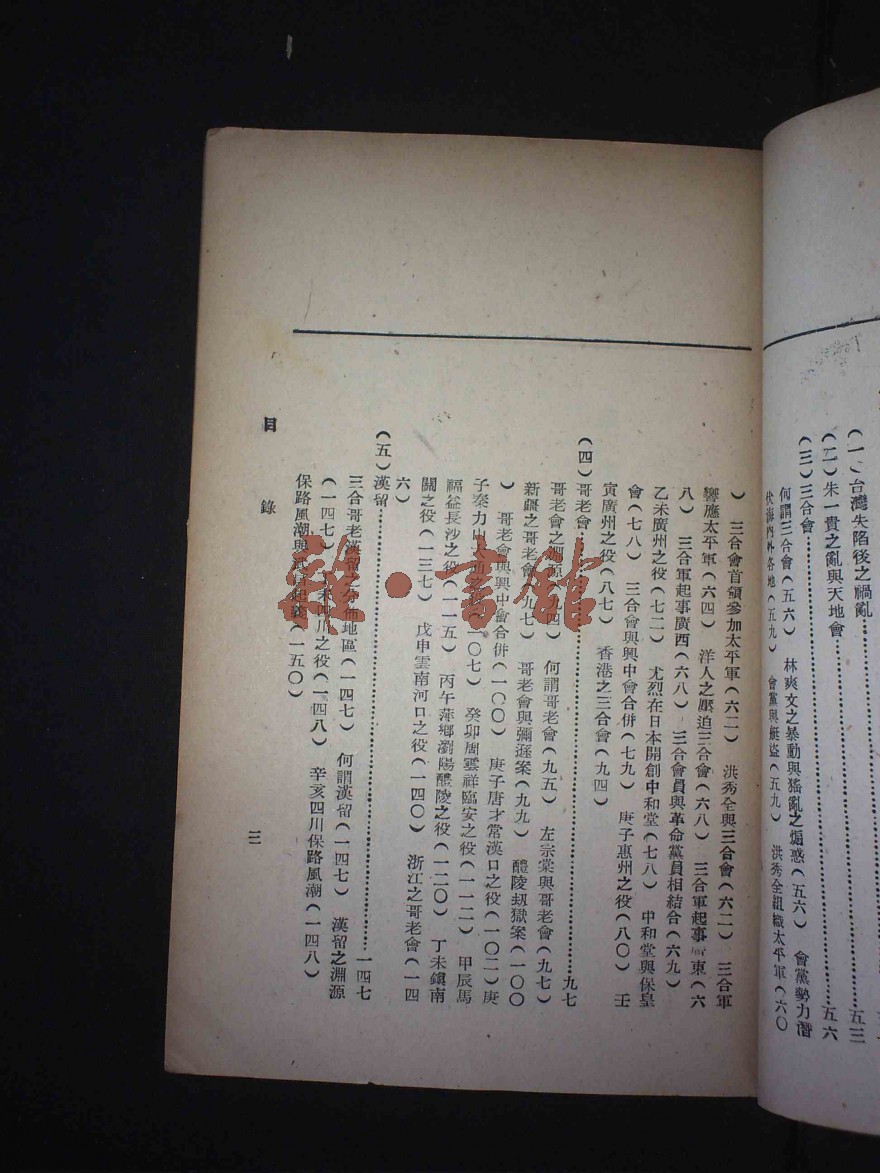 (一)台灣失陷後之禍亂……五三
(二)朱一貴之亂與天地會……五六
(三)三合會
何謂三合會(五六) 林爽文之暴動與猺亂之煽惑(五六) 會黨勢力潛
伏海內外各地(五九) 會黨與艇盜(五九) 洪秀全組織太平軍(六〇
) 三合會首領參加太平軍(六二) 洪秀全與三合會(六二) 三合軍
響應太平軍(六四) 洋人之壓迫三合會(六八) 三合軍起事廣東(六
八) 三合軍起事廣西(六八) 三合會員與革命黨員相結合(六九)
乙未廣州之役(七二) 尤烈在日本開創中和堂(七八) 中和堂與保皇
會(七八) 三合會與興中會合併(七九) 庚子惠州之役(八〇) 壬
寅廣州之役(八七) 香港之三合會(九四)
(四)哥老會……九七
哥老會之淵源(九四) 何謂哥老會(九五) 左宗棠與哥老會(九七)
新疆之哥老會(九七) 哥老會與彌遜案(九九) 醴陵刧獄案(一〇〇
) 哥老會與興中會合併(一〇〇) 庚子唐才常漢口之役(一〇二)庚
子秦力山大通之役(一〇七) 癸卯周雲祥臨安之役(一一二) 甲辰馬
福益長沙之役(一一五) 丙午萍鄉瀏陽醴陵之役(一二〇) 丁未鎮南
關之役(一三七) 戊申雲南河口之役(一四〇) 浙江之哥老會(一四
六)
(五)漢留……一四七
三合哥老漢留之分佈地區(一四七) 何謂漢留(一四七) 漢留之淵源
(一四七) 丁未四川之役(一四八) 辛亥四川保路風潮(一四八)
保路風潮與武昌起義(一五〇)
目錄
三
雜·書館